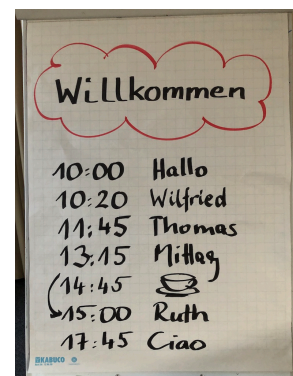 Willkommen
10:00 Hallo
10:20 Wilfried
11:45 Thomas
13:15 Mittag
14:45
15:00 Ruth
17:45 Ciao
KABUCO